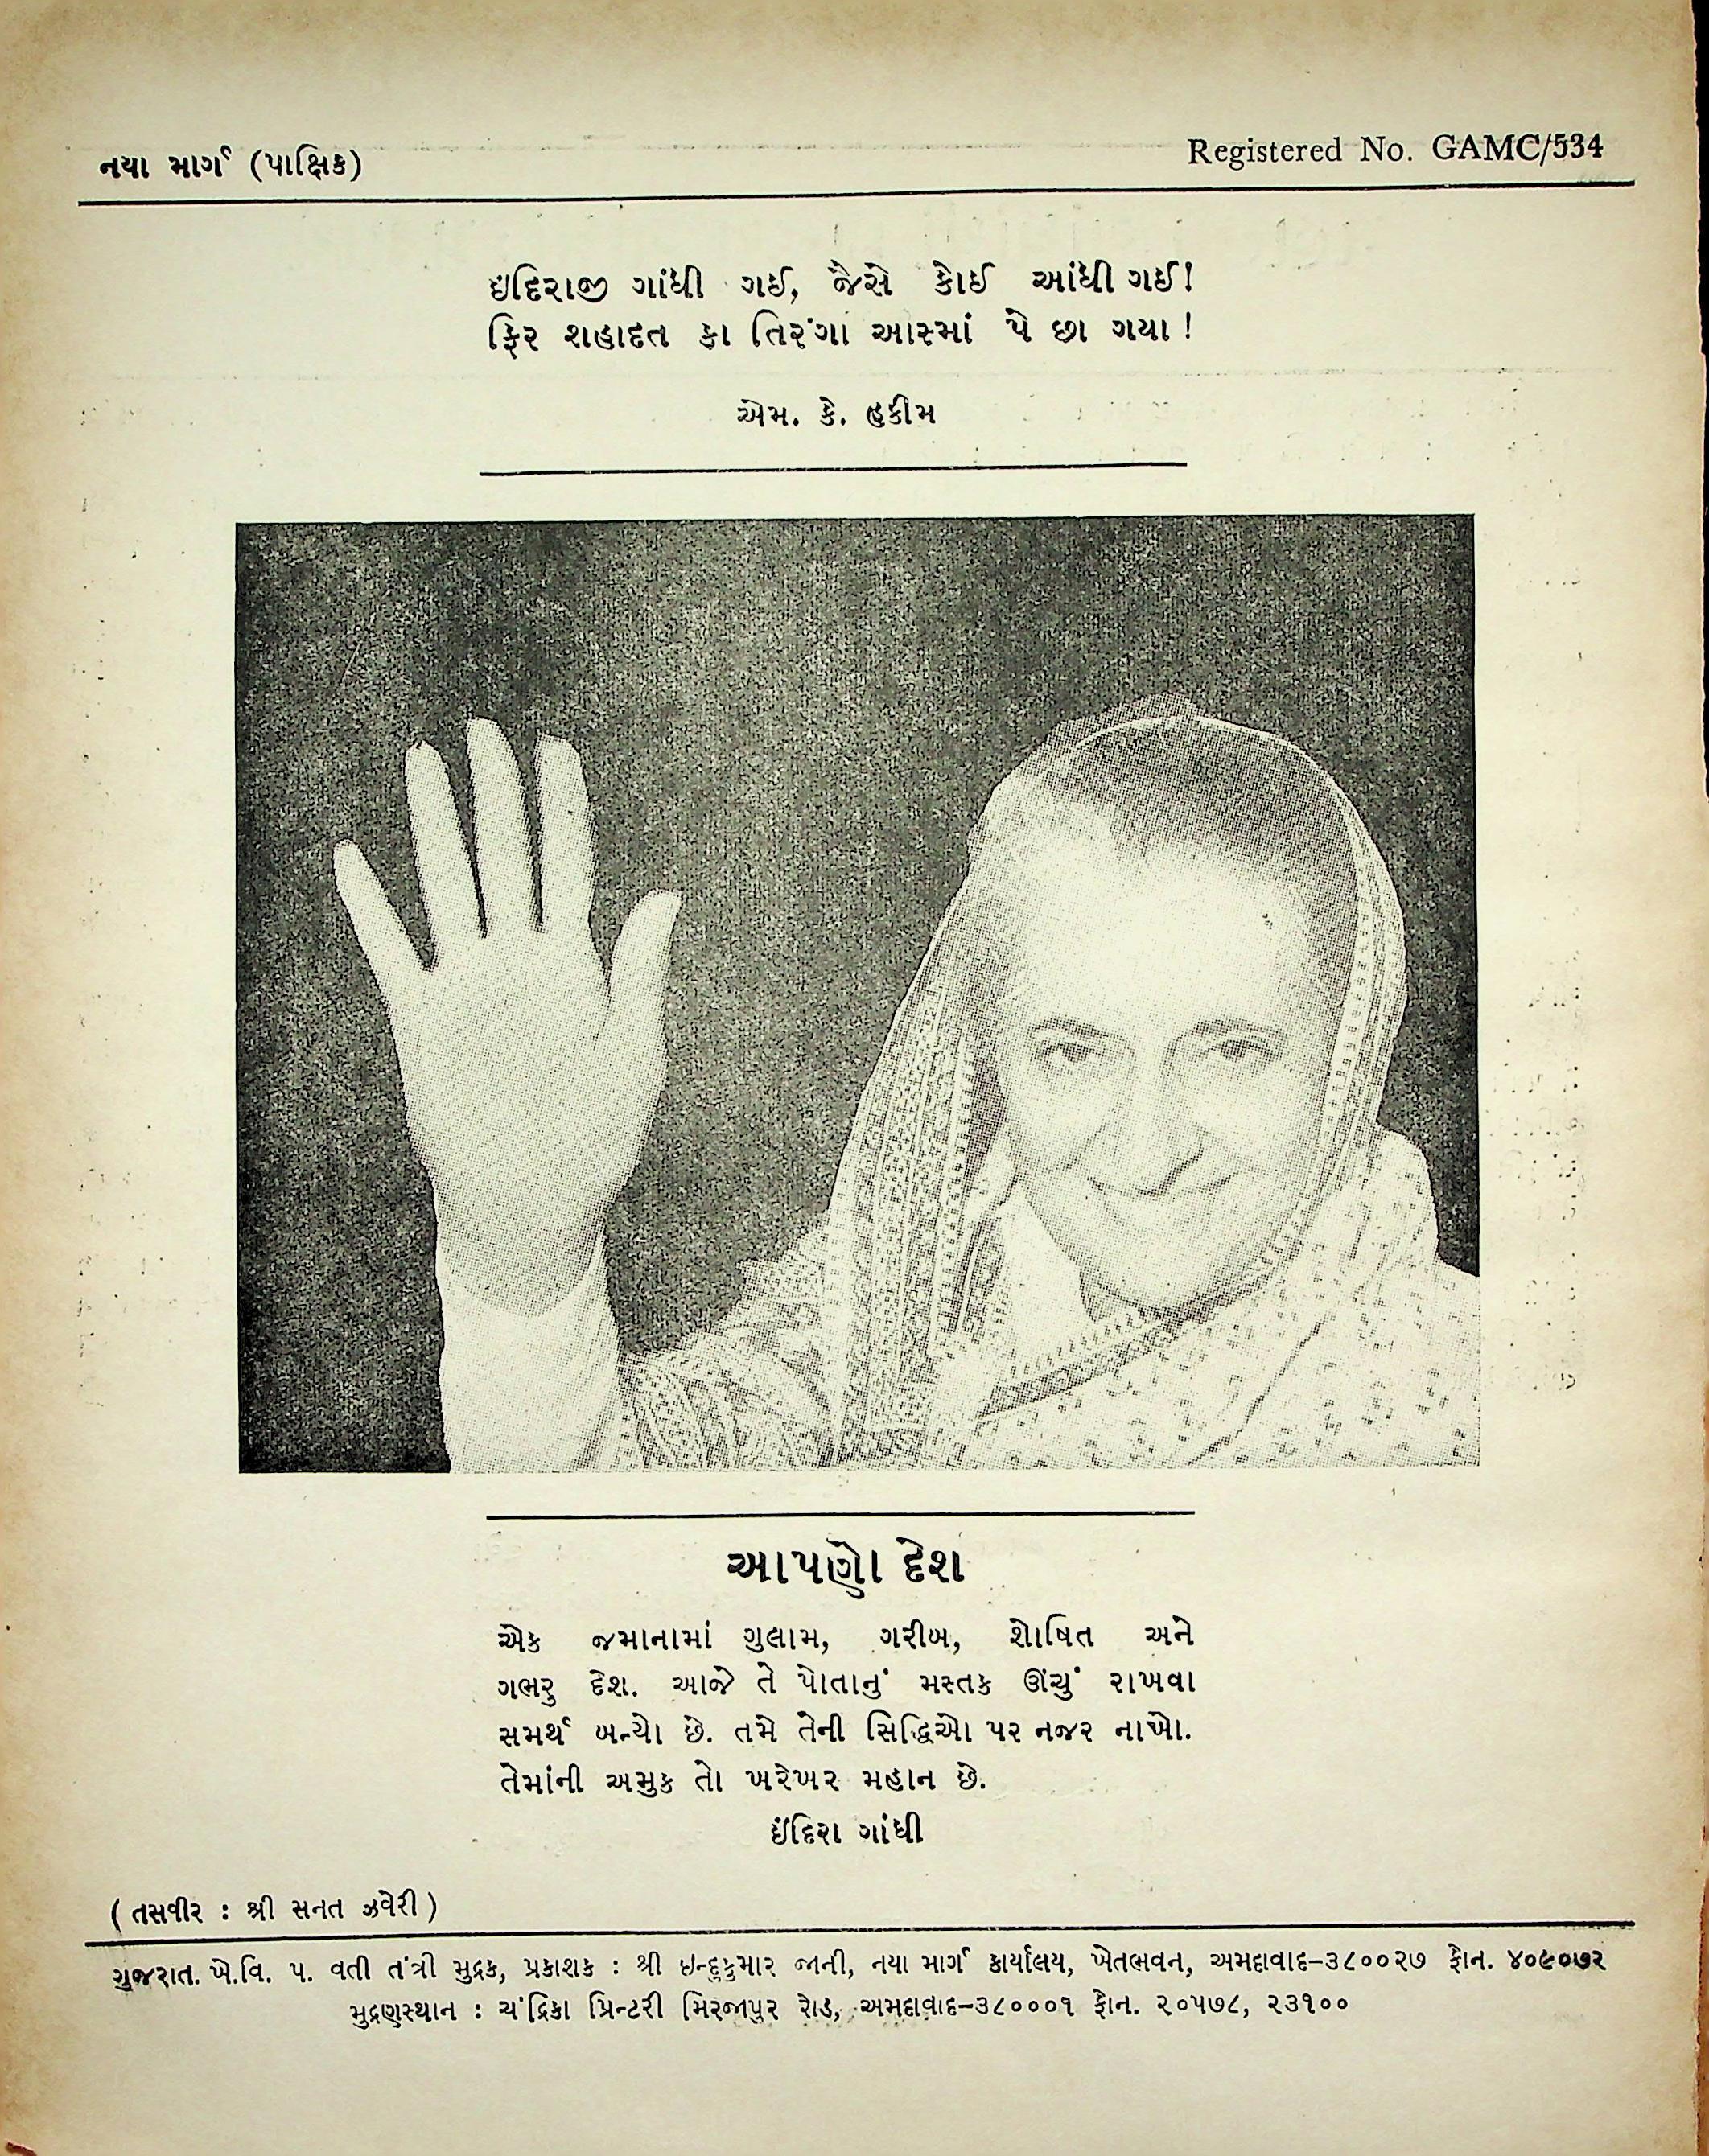 નયા માર્ગ (પાક્ષિક)
Registered No. GAMC/534
ઇંદિરાજી ગાંધી ગઈ, જૈસે કોઈ આંધી ગઈ!
ફિર શહાદત કા તિરંગા આસ્માં પે છા ગયા!
એમ. કે. હકીમ
આપણો દેશ
એક જમાનામાં ગુલામ, ગરીબ, શોષિત અને
ગભરુ દેશ. આજે તે પોતાનું મસ્તક ઊંચું રાખવા
સમર્થ બન્યો છે. તમે તેની સિદ્ધિઓ પર નજર નાખો.
તેમાંની અમુક તો ખરેખર મહાન છે.
ઇંદિરા ગાંધી
( તસવીર : શ્રી સનત ઝવેરી )
ગુજરાત. ખે.વિ. પ. વતી તંત્રી મુદ્રક, પ્રકાશક : શ્રી ઇન્દુકુમાર જાની, નયા માર્ગ કાર્યાલય, ખેતભવન, અમદાવાદ-૩૮૦૦૨૭ ફોન. ૪૦૯૦૭૨
મુદ્રણસ્થાન : ચંદ્રિકા પ્રિન્ટરી મિરજાપુર રોડ, અમદાવાદ-૩૮૦૦૦૧ ફોન. ૨૦૫૭૮, ૨૩૧૦૦